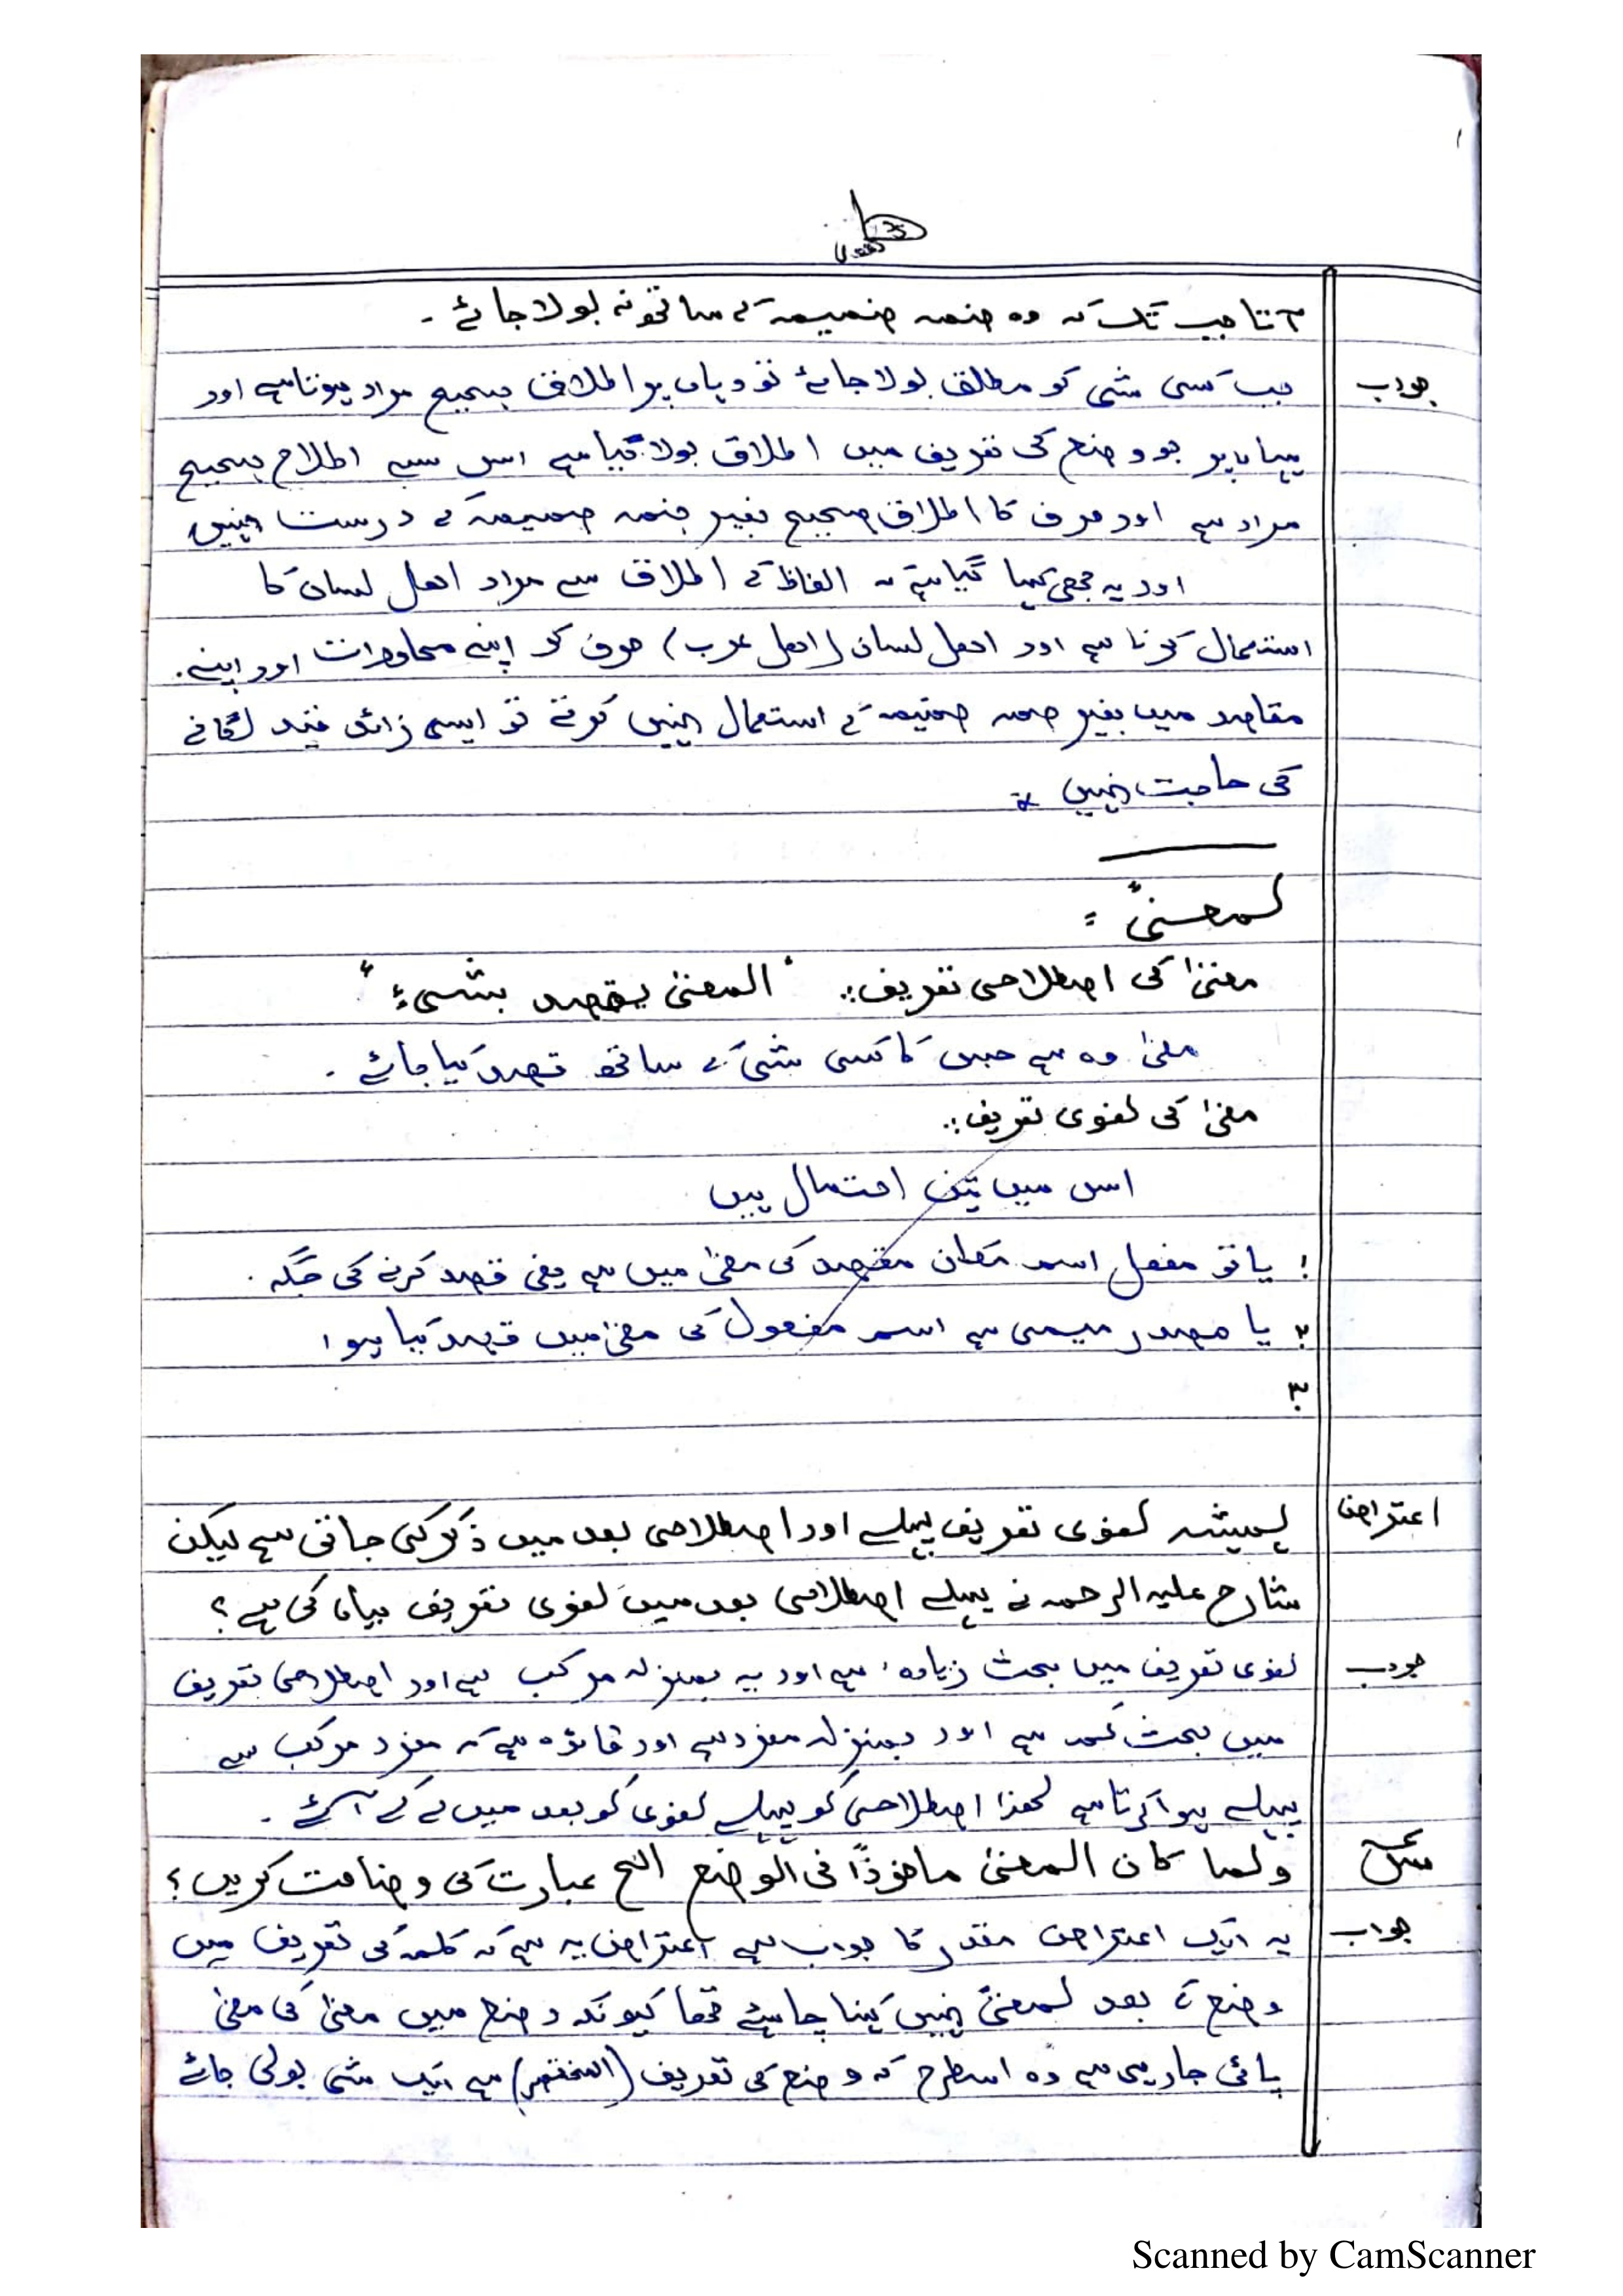 آتا جب تک کہ وہ ضمہ ضمیمہ کے ساتھ نہ بولا جائے ۔
جواب جب کسی شئی کو مطلق بولا جائے تو وہاں پر اطلاق صحیح مراد ہوتا ہے اور
یہاں پر جو وضع کی تعریف میں اطلاق بولا گیا ہے اس سے اطلاح صحیح
مراد ہے اور حرف کا اطلاق صحیح بغیر ضمہ ضمیمہ کے درست نہیں
اور یہ بھی کہا گیا ہے کہ الفاظ کے اطلاق سے مراد اھل لسان کا
استعمال کرنا ہے اور اھل لسان (اھل عرب) حرف کو اپنے محاورات اور اپنے
مقاصد میں بغیر ضمہ ضمیمہ کے استعمال نہیں کرتے تو ایسی زائد قید لگانے
کی حاجت نہیں
لمعنیً =
معنیٰ کی اصطلاحی تعریف:. "المعنیٰ یقصد بشیء"
معنیٰ وہ ہے جس کا کسی شئی کے ساتھ قصد کیا جائے ۔
معنیٰ کی لغوی تعریف:.
اس میں تین احتمال ہیں
۱ یا تو مفعل اسم مکان مقصد کی معنیٰ میں ہے یعنی قصد کرنے کی جگہ ۔
۲ یا مصدر میمی ہے اسم مفعول کی معنیٰ میں قصد کیا ہوا
۳
اعتراض ہمیشہ لغوی تعریف پہلے اور اصطلاحی بعد میں ذکر کی جاتی ہے لیکن
شارح علیہ الرحمہ نے پہلے اصطلاحی بعد میں لغوی تعریف بیان کی ہے ؟
جواب لغوی تعریف میں بحث زیادہ ہے اور یہ بمنزلہ مرکب ہے اور اصطلاحی تعریف
میں بحث کم ہے اور بمنزلہ مفرد ہے اور قائدہ ہے کہ مفرد مرکب سے
پہلے ہوا کرتا ہے لھذا اصطلاحی کو پہلے لغوی کو بعد میں لے کے آئے ۔
س ولما کان المعنیٰ ماخوذًا فی الوضع الخ عبارت کی وضاحت کریں ؟
جواب یہ ایک اعتراض مقدر کا جواب ہے اعتراض یہ ہے کہ کلمہ کی تعریف میں
وضع کے بعد لمعنیً نہیں کہنا چاہئے تھا کیونکہ وضع میں معنیٰ کی معنیٰ
پائی جا رہی ہے وہ اسطرح کہ وضع کی تعریف (المختصر) ہے ایک شئی بولی جائے
Scanned by CamScanner